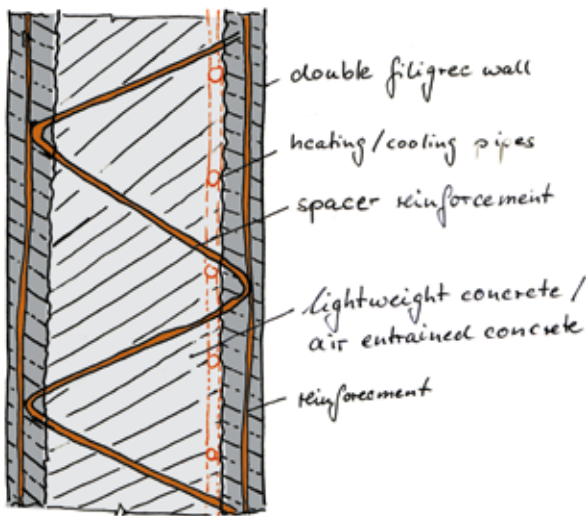 double filigree wall
heating/cooling pipes
spacer reinforcement
lightweight concrete/
air entrained concrete
reinforcement